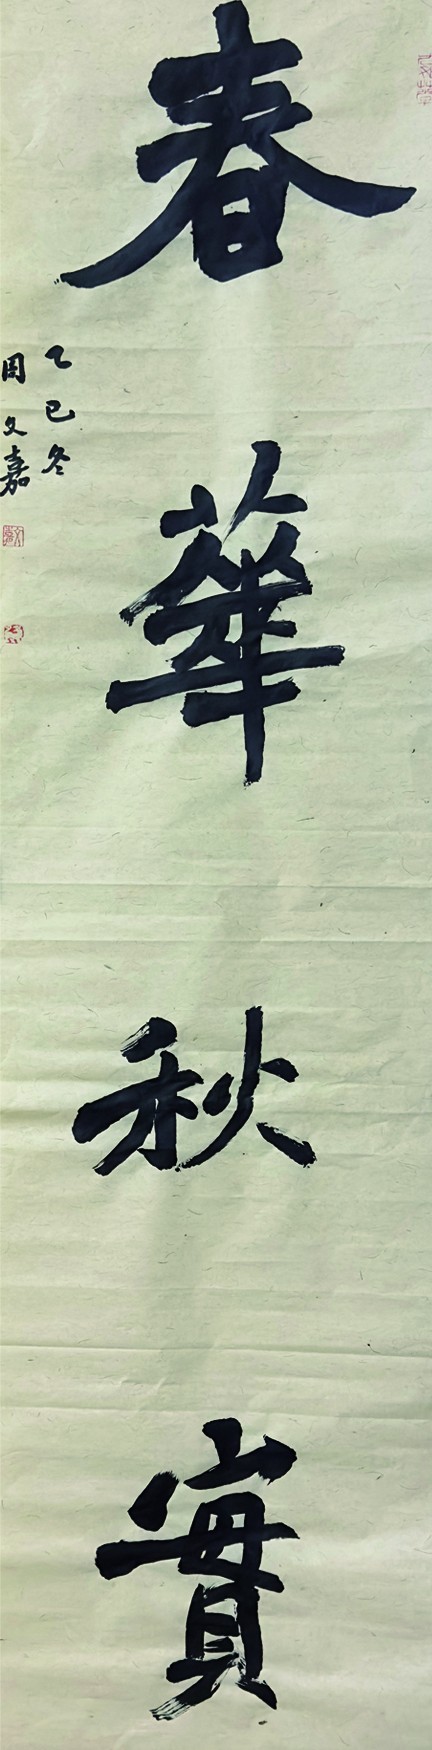 春華秋實
乙巳冬
周文嘉